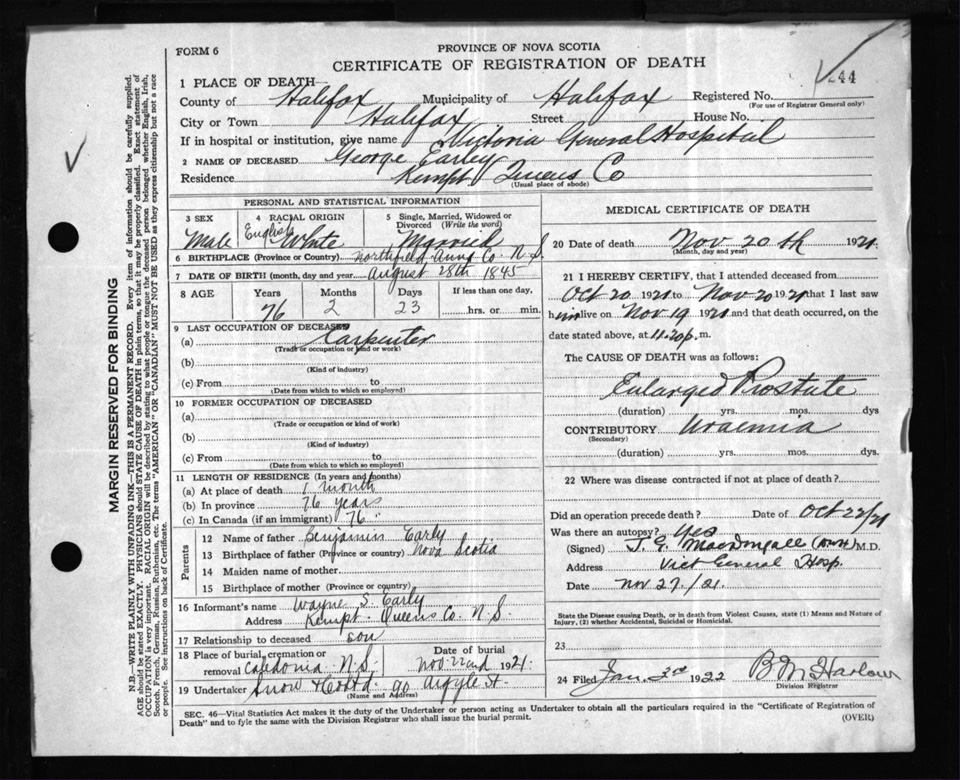 FORM 6
PROVINCE OF NOVA SCOTIA
CERTIFICATE OF REGISTRATION OF DEATH
44
1 PLACE OF DEATH
County of Halifax Municipality of Halifax Registered No.
(For use of Registrar General only)
City or Town Halifax Street House No.
If in hospital or institution, give name Victoria General Hospital
2 NAME OF DECEASED George Earley
Residence Kempt Queens Co
(Usual place of abode)
PERSONAL AND STATISTICAL INFORMATION
3 SEX 4 RACIAL ORIGIN 5 Single, Married, Widowed or Divorced (Write the word)
Male English White Married
6 BIRTHPLACE (Province or Country) Northfield Anna Co. N.S.
7 DATE OF BIRTH (month, day and year) August 28th 1845
8 AGE Years Months Days If less than one day,
76 2 23 hrs. or min.
9 LAST OCCUPATION OF DECEASED
(a) Carpenter
(Trade or occupation or kind of work)
(b)
(Kind of industry)
(c) From to
(Date from which to which so employed)
10 FORMER OCCUPATION OF DECEASED
(a)
(Trade or occupation or kind of work)
(b)
(Kind of industry)
(c) From to
(Date from which to which so employed)
11 LENGTH OF RESIDENCE (In years and months)
(a) At place of death 1 month
(b) In province 76 years
(c) In Canada (if an immigrant) 76 "
Parents
12 Name of father Benjamin Early
13 Birthplace of father (Province or country) Nova Scotia
14 Maiden name of mother
15 Birthplace of mother (Province or country)
16 Informant's name Wayne S. Early
Address Kempt. Queens Co. N.S.
17 Relationship to deceased son
18 Place of burial, cremation or removal Caledonia N.S. Date of burial Nov 22nd 1921.
19 Undertaker Snow & Co Ltd 90 Argyle St.
(Name and Address)
MEDICAL CERTIFICATE OF DEATH
20 Date of death Nov 20th 1921.
(Month, day and year)
21 I HEREBY CERTIFY, that I attended deceased from
Oct 20 1921 to Nov 20 1921 that I last saw
him alive on Nov 19 1921 and that death occurred, on the
date stated above, at 11.20 p.m.
The CAUSE OF DEATH was as follows:
Enlarged Prostate
(duration) yrs. mos. dys
CONTRIBUTORY Uraemia
(Secondary)
(duration) yrs. mos. dys.
22 Where was disease contracted if not at place of death?
Did an operation precede death? Date of Oct 22/21
Was there an autopsy? Yes
(Signed) J. G. MacDougall M.D.
Address Vict General Hosp.
Date Nov 27./21.
State the Disease causing Death, or in death from Violent Causes, state (1) Means and Nature of
Injury, (2) whether Accidental, Suicidal or Homicidal.
23
24 Filed Jan. 3rd 1922 B M Harlow
Division Registrar
SEC. 46—Vital Statistics Act makes it the duty of the Undertaker or person acting as Undertaker to obtain all the particulars required in the "Certificate of Registration of
Death" and to fyle the same with the Division Registrar who shall issue the burial permit.
(OVER)
MARGIN RESERVED FOR BINDING
N.B.—WRITE PLAINLY WITH UNFADING INK—THIS IS A PERMANENT RECORD. Every item of information should be carefully supplied.
AGE should be stated EXACTLY. PHYSICIANS should STATE CAUSE OF DEATH in plain terms, so that it may be properly classified. Exact statement of
OCCUPATION is very important. RACIAL ORIGIN will be described by stating to what people or tongue the deceased person belonged whether English, Irish,
Scotch, French, German, Russian, Ruthenian, etc. The terms "AMERICAN" OR "CANADIAN" MUST NOT BE USED as they express citizenship but not a race
or people. See instructions on back of Certificate.